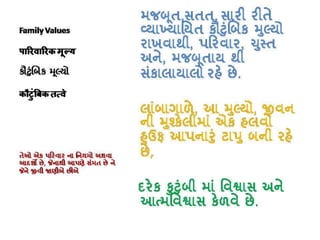 Family Values
પારિવારિક મૂલ્ય
કૌટુંબિક મૂલ્યો
कौटुंबिक तत्वे
તેઓ એક પરિવાર ના નિયમો અથવા
આદર્શો છે, જેનાથી આપણે સંગત છે ને
જેને જીવી જાણીએ છીએ
મજબૂત,સતત, સારી રીતે
વ્યાખ્યાયિત કૌટુંબિક મુલ્યો
રાખવાથી, પરિવાર, ચુસ્ત
અને, મજબૂતાય થી
સંકાલાયાલો રહે છે.
લાંબાગાળે, આ મુલ્યો, જીવન
ની મુશ્કેલીમાં એક હલવો
હુંફ આપનારું ટાપુ બની રહે
છે,
દરેક કુટુંબી માં વિશ્વાસ અને
આત્મવિશ્વાસ કેળવે છે.